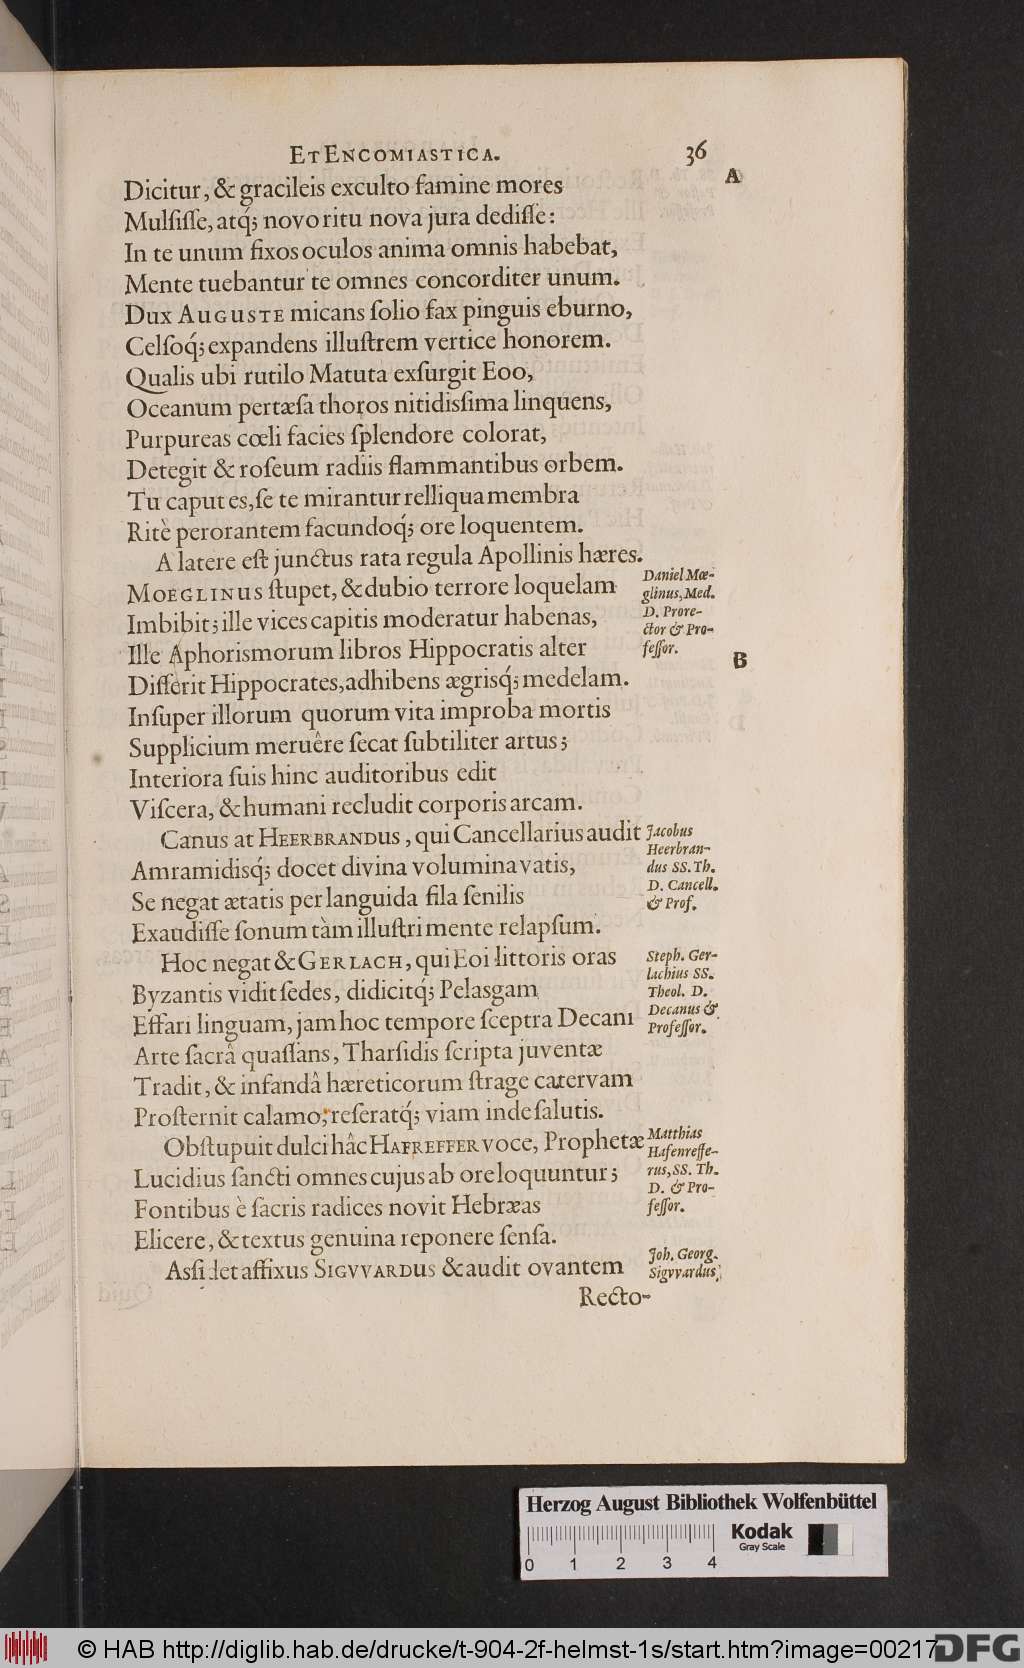 ET ENCOMIASTICA. 36
A
Dicitur, & gracileis exculto famine mores
Mulſiſſe, atq́; novo ritu nova jura dediſſe:
In te unum fixos oculos anima omnis habebat,
Mente tuebantur te omnes concorditer unum.
Dux AUGUSTE micans ſolio fax pinguis eburno,
Celſoq́; expandens illuſtrem vertice honorem.
Qualis ubi rutilo Matuta exſurgit Eoo,
Oceanum pertæſa thoros nitidiſsima linquens,
Purpureas cœli facies ſplendore colorat,
Detegit & roſeum radiis flammantibus orbem.
Tu caput es, ſe te mirantur relliqua membra
Ritè perorantem facundoq́; ore loquentem.
A latere eſt junctus rata regula Apollinis hæres.
MOEGLINUS ſtupet, & dubio terrore loquelam
Imbibit; ille vices capitis moderatur habenas,
Ille Aphorismorum libros Hippocratis alter
Diſſerit Hippocrates, adhibens ægrisq́; medelam.
Inſuper illorum quorum vita improba mortis
Supplicium meruêre ſecat ſubtiliter artus;
Interiora ſuis hinc auditoribus edit
Viſcera, & humani recludit corporis arcam.
Daniel Mœ-
glinus, Med.
D. Prore-
ctor & Pro-
feſſor.
B
Canus at HEERBRANDUS, qui Cancellarius audit
Amramidisq́; docet divina volumina vatis,
Se negat ætatis per languida fila ſenilis
Exaudiſſe ſonum tàm illuſtri mente relapſum.
Jacobus
Heerbran-
dus SS. Th.
D. Cancell.
& Prof.
Hoc negat & GERLACH, qui Eoi littoris oras
Byzantis vidit ſedes, didicitq́; Pelasgam
Effari linguam, jam hoc tempore ſceptra Decani
Arte ſacrâ quaſſans, Tharſidis ſcripta juventæ
Tradit, & infandâ hæreticorum ſtrage catervam
Proſternit calamo, reſeratq́; viam inde ſalutis.
Steph. Ger-
lachius SS.
Theol. D.
Decanus &
Profeſſor.
Obſtupuit dulci hâc HAFREFFER voce, Prophetæ
Lucidius ſancti omnes cujus ab ore loquuntur;
Fontibus è ſacris radices novit Hebræas
Elicere, & textus genuina reponere ſenſa.
Matthias
Hafenreffe-
rus, SS. Th.
D. & Pro-
feſſor.
Aſsidet affixus SIGVVARDUS & audit ovantem
Joh. Georg.
Sigvvardus
Recto-
Herzog August Bibliothek Wolfenbüttel
Kodak
Gray Scale
0 1 2 3 4
© HAB http://diglib.hab.de/drucke/t-904-2f-helmst-1s/start.htm?image=00217
DFG